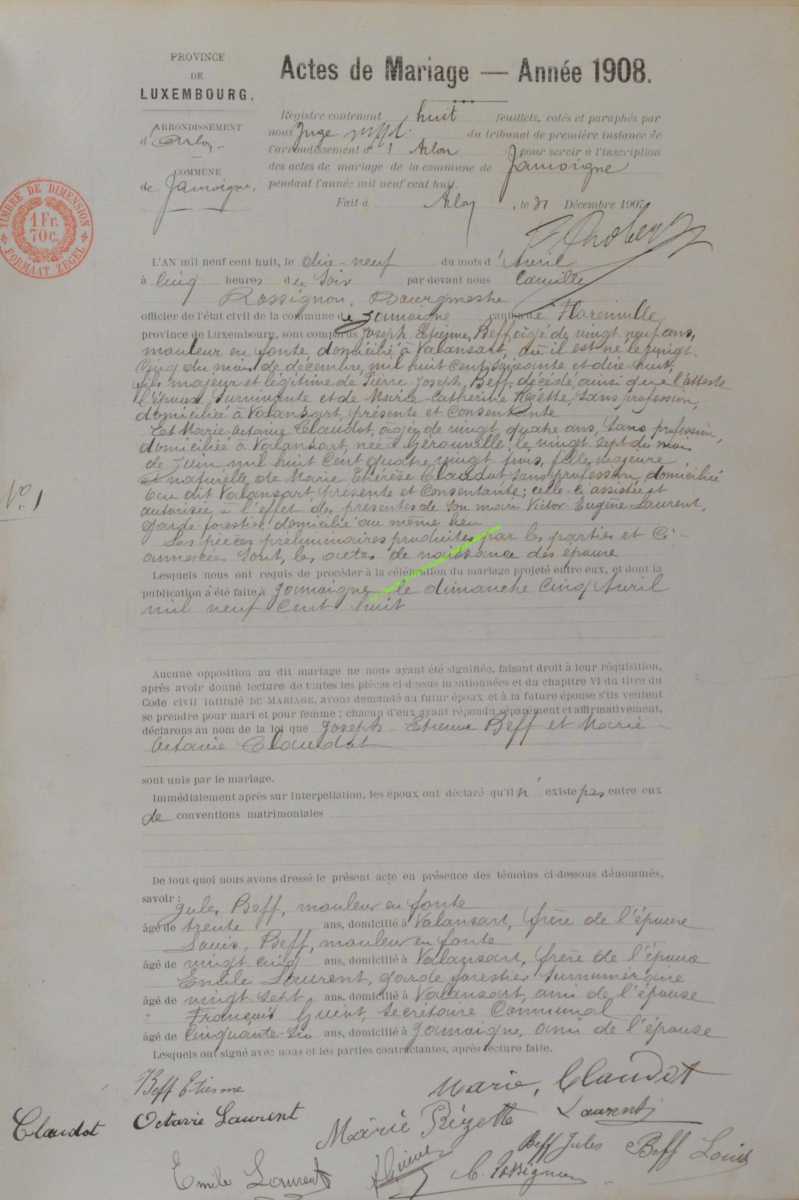 PROVINCE
DE
LUXEMBOURG.
ARRONDISSEMENT
d'Arlon
COMMUNE
de Jamoigne.
TIMBRE DE DIMENSION
1 Fr.
70 c.
FORMAAT ZEGEL
Actes de Mariage — Année 1908.
Registre contenant huit feuillets, cotés et paraphés par
nous Juge du tribunal de première instance de
l'arrondissement d'Arlon pour servir à l'inscription
des actes de mariage de la commune de Jamoigne
pendant l'année mil neuf cent huit.
Fait à Arlon, le 31 Décembre 1907
L'AN mil neuf cent huit, le dix-neuf du mois d'Avril
à cinq heures du Soir par devant nous Camille
Rossignon, Bourgmestre
officier de l'état civil de la commune de Jamoigne canton de Florenville
province de Luxembourg, sont comparus Joseph Etienne Beff, agé de vingt neuf ans,
mouleur en fonte, domicilié à Valansart, où il est né le vingt
cinq du mois de décembre, mil huit cent soixante et dix huit,
fils majeur et légitime de Pierre Joseph Beff décédé, ainsi que l'atteste
l'épouse Survivante et de Marie Catherine Rézette, Sans profession,
domiciliée à Valansart, présente et Consentante
Et Marie Octavie Claudot, agée de vingt quatre ans, Sans profession,
domiciliée à Valansart, née à Gérouville, le vingt Sept du mois
de Juin mil huit Cent quatre vingt trois, fille majeure
et naturelle de Marie Thérèse Claudot Sans profession, domiciliée
au dit Valansart, présente et Consentante; celle-ci assistée et
autorisée à l'effet des présentes de Son mari Victor Eugène Laurent,
garde forestier, domicilié au même lieu
Les pièces préliminaires produites par les parties et Ci-
annexées Sont, les actes de naissance des époux
N° 1
Lesquels nous ont requis de procéder à la célébration du mariage projeté entre eux, et dont la
publication a été faite à Jamoigne, le dimanche Cinq Avril
mil neuf Cent huit
Aucune opposition au dit mariage ne nous ayant été signifiée, faisant droit à leur réquisition,
après avoir donné lecture de toutes les pièces ci-dessus mentionnées et du chapitre VI du titre du
Code civil intitulé DU MARIAGE, avons demandé au futur époux et à la future épouse s'ils veulent
se prendre pour mari et pour femme ; chacun d'eux ayant répondu séparément et affirmativement,
déclarons au nom de la loi que Joseph Etienne Beff et Marie
Octavie Claudot
sont unis par le mariage.
Immédiatement après sur interpellation, les époux ont déclaré qu'il n'existe pas entre eux
de conventions matrimoniales
De tout quoi nous avons dressé le présent acte en présence des témoins ci-dessous dénommés,
savoir : Jules Beff, mouleur en fonte
âgé de trente ans, domicilié à Valansart, frère de l'époux
Louis Beff, mouleur en fonte
âgé de vingt cinq ans, domicilié à Valansart, frère de l'époux
Emile Laurent, garde forestier Surnuméraire
âgé de vingt Sept ans, domicilié à Valansart, ami de l'épouse
François Guiot, Secrétaire Communal
âgé de Cinquante-Six ans, domicilié à Jamoigne, ami de l'épouse
Lesquels ont signé avec nous et les parties contractantes, après lecture faite.
Beff Etienne
Marie, Claudot
Claudot
Octavie Laurent
Marie Rézette
Laurent
Emile Laurent
C. Rossignon
Beff Jules
Beff Louis